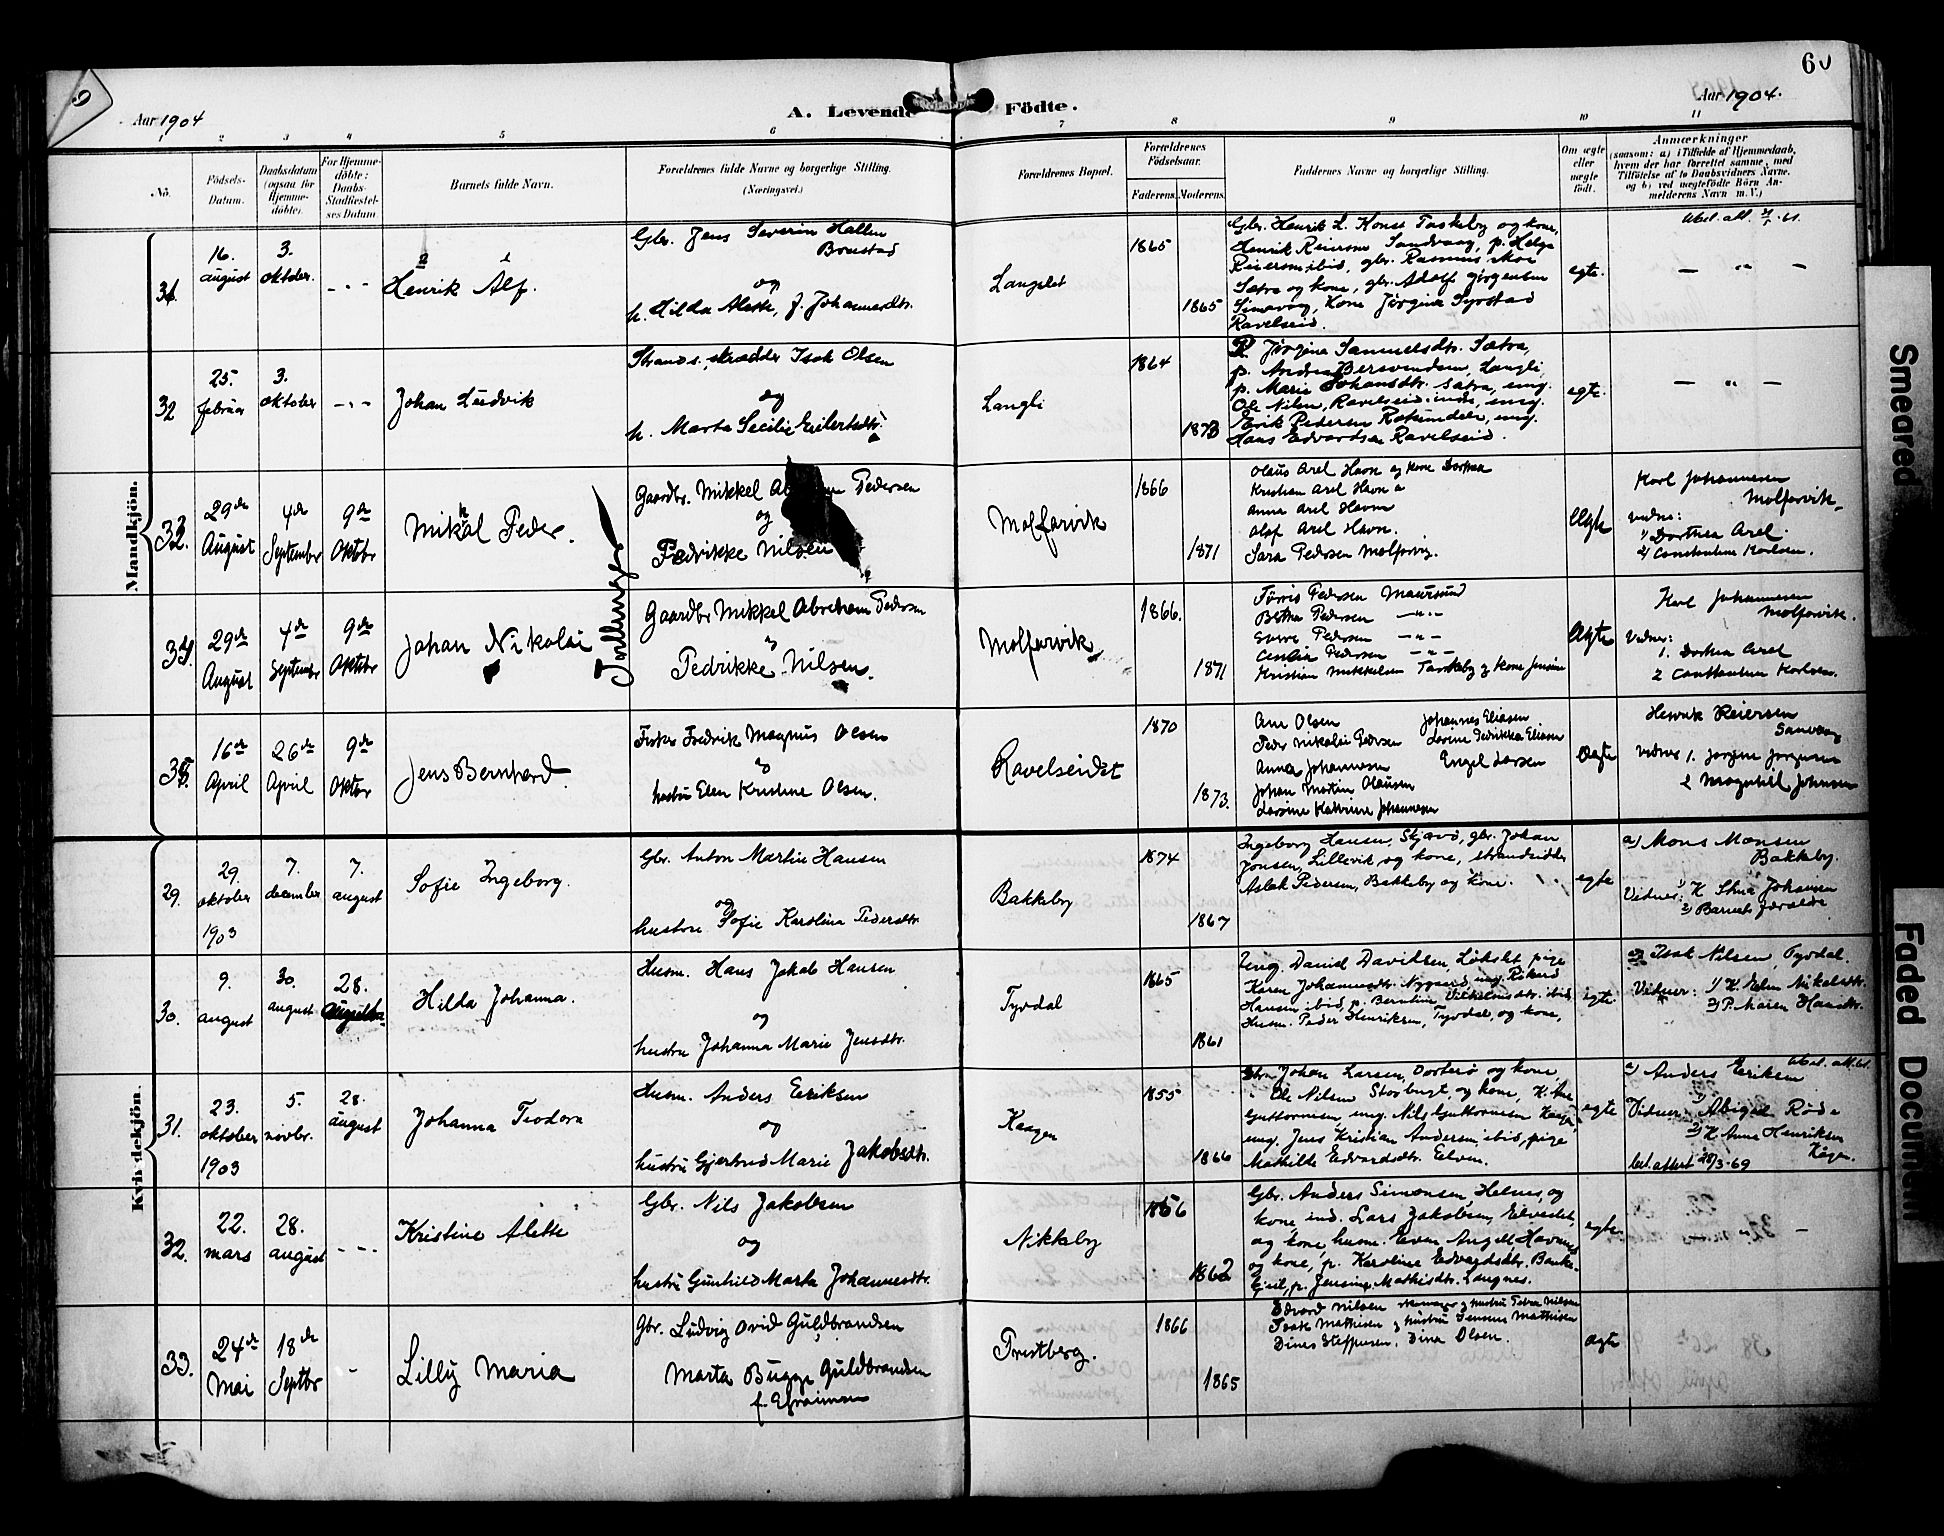 60
9
Aar 1904
A. Levende Födte.
Aar 1904.
1 2 3 4 5 6 7 8 9 10 11
No.
Födsels-
Datum.
Daabsdatum
(ogsaa for
Hjemme-
döbte).
For Hjemme-
döbte:
Daabs-
Stadfæstel-
ses Datum
Barnets fulde Navn.
Forældrenes fulde Navne og borgerlige Stilling.
(Næringsvei.)
Forældrenes Bopæl.
Forældrenes
Födselsaar.
Faderens.
Moderens.
Faddernes Navne og borgerlige Stilling.
Om ægte
eller
uægte
födt.
Anmærkninger
(saasom: a) i Tilfælde af Hjemmedaab,
hvem der har forrettet samme, med
Tilföielse af to Daabsvidners Navne,
og b) ved uægtefödte Börn An-
melderens Navn m. V.)
Mandkjön.
31.
16.
august
3.
oktober.
Henrik Alf.
Gbr. Jens Severin Hallen
Bonstad
og
h. Hilda Alette, f. Johannesdtr.
Langslet
1865
1865
Gbr. Henrik L. Taskeby og kone,
Henrik Reiersen Sandvaag, p. Helga
Reiersen ibid, gbr. Rasmus Moe
Sætra og kone, gbr. Adolf Jørgensen
Simavåg, Kone Jørgine
Ravelseid.
egte.
— " —
32
25.
februar
3.
oktober
Johan Ludvik
Strands. skrædder Isak Olsen
og
h. Marta Secilie Eilertsdtr.
Langli
1864
1873
Jørgine Samuelsdtr. Sætra,
p. Andrea Berovendsen, Langli,
p. Marie Johansdtr. Sætra, ung.
Ole Nilsen, Ravelseid, ung.
Erik Pedersen Rotsundelv, ung.
Hans Edvardsen Ravelseid.
egte.
— " —
33.
29de
August
4de
September
9de
Oktbr
Mikal Peder.
Tvillinger
Gaardbr. Mikkel Pedersen
og
Fredrikke Nilsen
Molfarvik
1866
1871
Olaus Arel Havn og kone Dorthea
Kristian Arel Havn
Anna Arel Havn
Olaf Arel Havn.
Sara Pedersen Molforvig.
Ægte
Karl Johannesen
Molforvik.
vidne:
1) Dorthea Arel.
2) Constantine Karlsen.
34.
29de
August
4de
Septembr
9de
Oktbr
Johan Nikolai
Gaardbr Mikkel Abraham Pedersen
og
Pedrikke Nilsen.
Molforvik
1866.
1871
Pedersen Maursund
Berthea Pedersen — " —
Sverre Pedersen — " —
Pedersen — " —
Kristian Mikkelsen Taskeby og kone Jensine
Ægte
Karl Johannesen
Molforvik.
Vidner:
1. Dorthea Arel
2 Constantine Karlsen.
35.
16de
April
26de
April
9de
Oktbr
Jens Bernhard.
Fisker Fredrik Magnus Olsen
og
hustru Elen Kristine Olsen.
Ravelseidet
1870
1873.
Ane Olsen
Johannes Eliasen
Peder Nikolai Pedersen
Lovise Fedrikka Eliasen
Anna Johannesen
Engel Larsen
Johan Martin Olausen
Lovise Kathrine Johannesen
Ægte
Henrik Reiersen
Sanvaag
vidner 1. Jørgine Jørgensen
2 Magnhild Johnsen
Kvindekjön.
29.
29.
oktober
1903
7.
december
7.
august
Sofie Ingeborg.
Gbr. Anton Martin Hansen
og
hustru Sofie Karolina Pedersdtr.
Bakkeby
1874
1867
Ingeborg Hansen, Skjævø, gbr. Johan
Jonsen, Lillevik og kone, strandsidder
Aslak Pedersen, Bakkeby og kone.
egte
a) Mons Monsen
Bakkeby.
Vidner: 1) K Stina Johansen
2) Barnets forældre
30.
9.
august
30.
august
28.
Hilda Johanna.
Husm. Hans Jakob Hansen
og
hustru Johanna Marie Jensdtr.
Tyvdal
1865
1861
Ung. Daniel Davidsen, Løkslet pige
Karen Johannesdtr. Nygaard, ung. Rikard
Hansen ibid, p. Berntine Vilhelmsdtr. ibid
Husm. Peder Henriksen, Tyvdal, og kone,
egte
a) Isak Nilsen, Tyvdal.
Vidner: 1) K Elen Nikolsdtr.
2) P. Maren Hansdtr.
31.
23.
oktober
1903
5.
novbr.
28.
august
Johanna Teodora
Husm. Anders Eriksen
og
hustru Gjertrud Marie Jakobsdtr.
Kaagen
1855
1866
Gbr. Johan Larsen, Dorterø og kone,
Ole Nilsen Storbugt, og kone, K. Ane
Guttormsen, ung. Nils Guttormsen Kaagen,
ung. Jens Kristian Andersen, ibid, pige
Mathilde Edvardsdtr. Elven.
egte
a) Anders Eriksen
Vidner: 1) Abigael Røde
2) K. Anna Henriksen
Kågen.
bel. attest 28/3-69
32.
22.
mars
28.
august
Kristine Alette
Gbr. Nils Jakobsen
og
hustru Gunhild Marta Johannesdtr.
Nikkeby
1856
1862
Gbr. Anders Simonsen, Helnes, og
kone, ind. Lars Jakobsen, Elvestet,
og kone, husm. Even Angell Havnnes
og kone, p. Karoline Edvardsdtr. Banke-
p. Jensine Mathisdtr. Langnes.
egte
— " —
33.
24de
Mai
18de
Septbr
Lilly Maria
Gbr. Ludvig Ovid Guldbrandsen
Marta Bugge Guldbrandsen
f. Efraimsen
Prestberg.
1866
1865
Edvard Nilsen skomager og hustru Petra Nilsen
Isak Mathisen og hustru Jensine Mathisen
Dines Steffensen, Dina Olsen.
ægte
Smeared
Faded Document